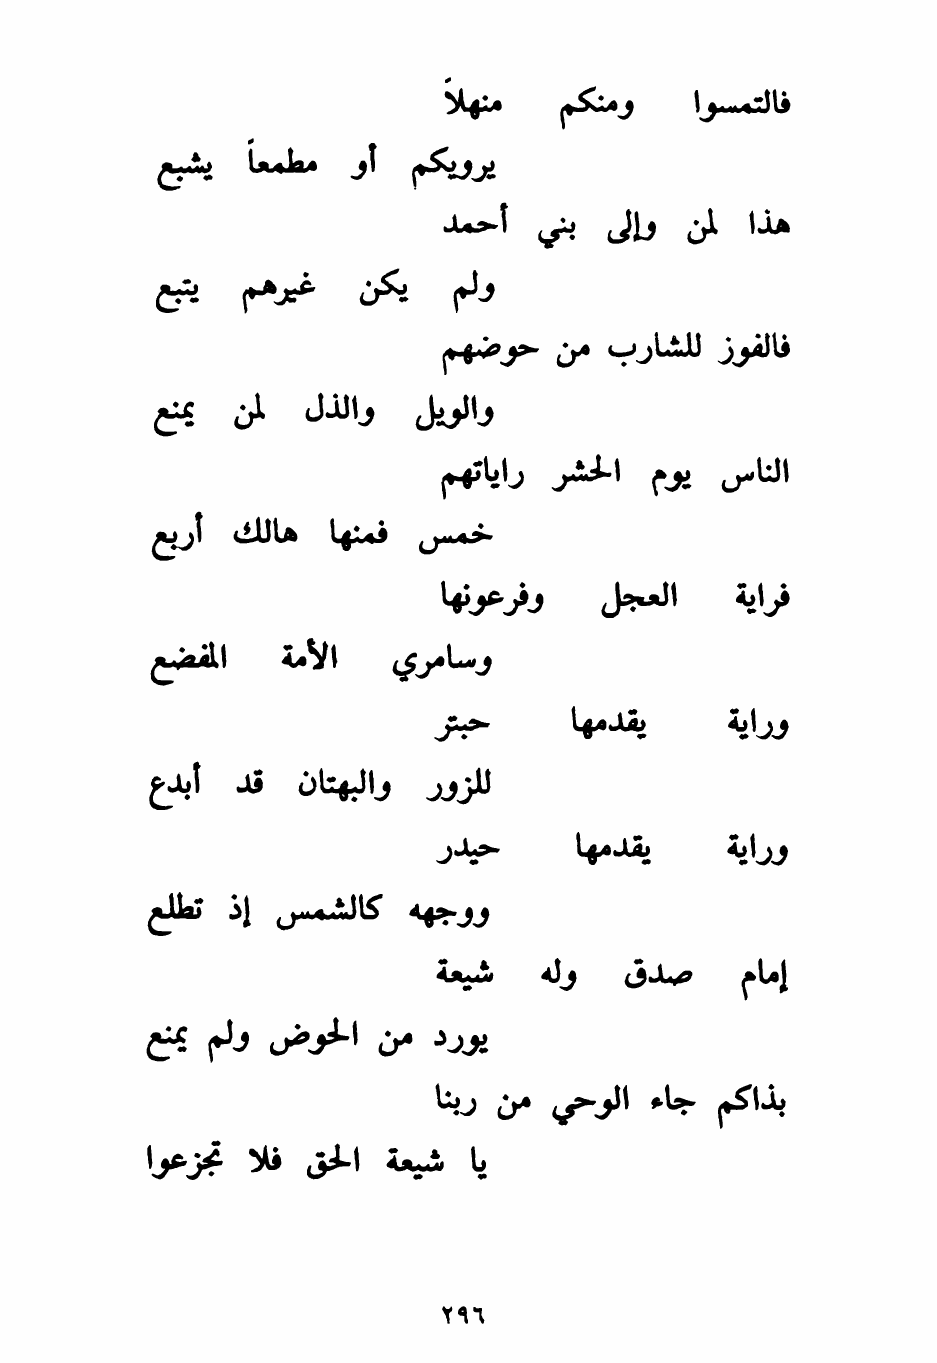 فالتمسوا ومنكم منهلاً
يرويكم أو مطمعاً يشبع
هذا لمن وإلى بني أحمد
ولم يكن غيرهم يتبع
فالفوز للشارب من حوضهم
والويل والذل لمن يمنع
الناس يوم الحشر راياتهم
خمس فمنها هالك أربع
فراية العجل وفرعونها
وسامري الأمة المفضع
وراية يقدمها حبتر
للزور والبهتان قد أبدع
وراية يقدمها حيدر
ووجهه كالشمس إذ تطلع
إمام صدق وله شيعة
يورد من الحوض ولم يمنع
بذاكم جاء الوحي من ربنا
يا شيعة الحق فلا تجزعوا
٢٩٦